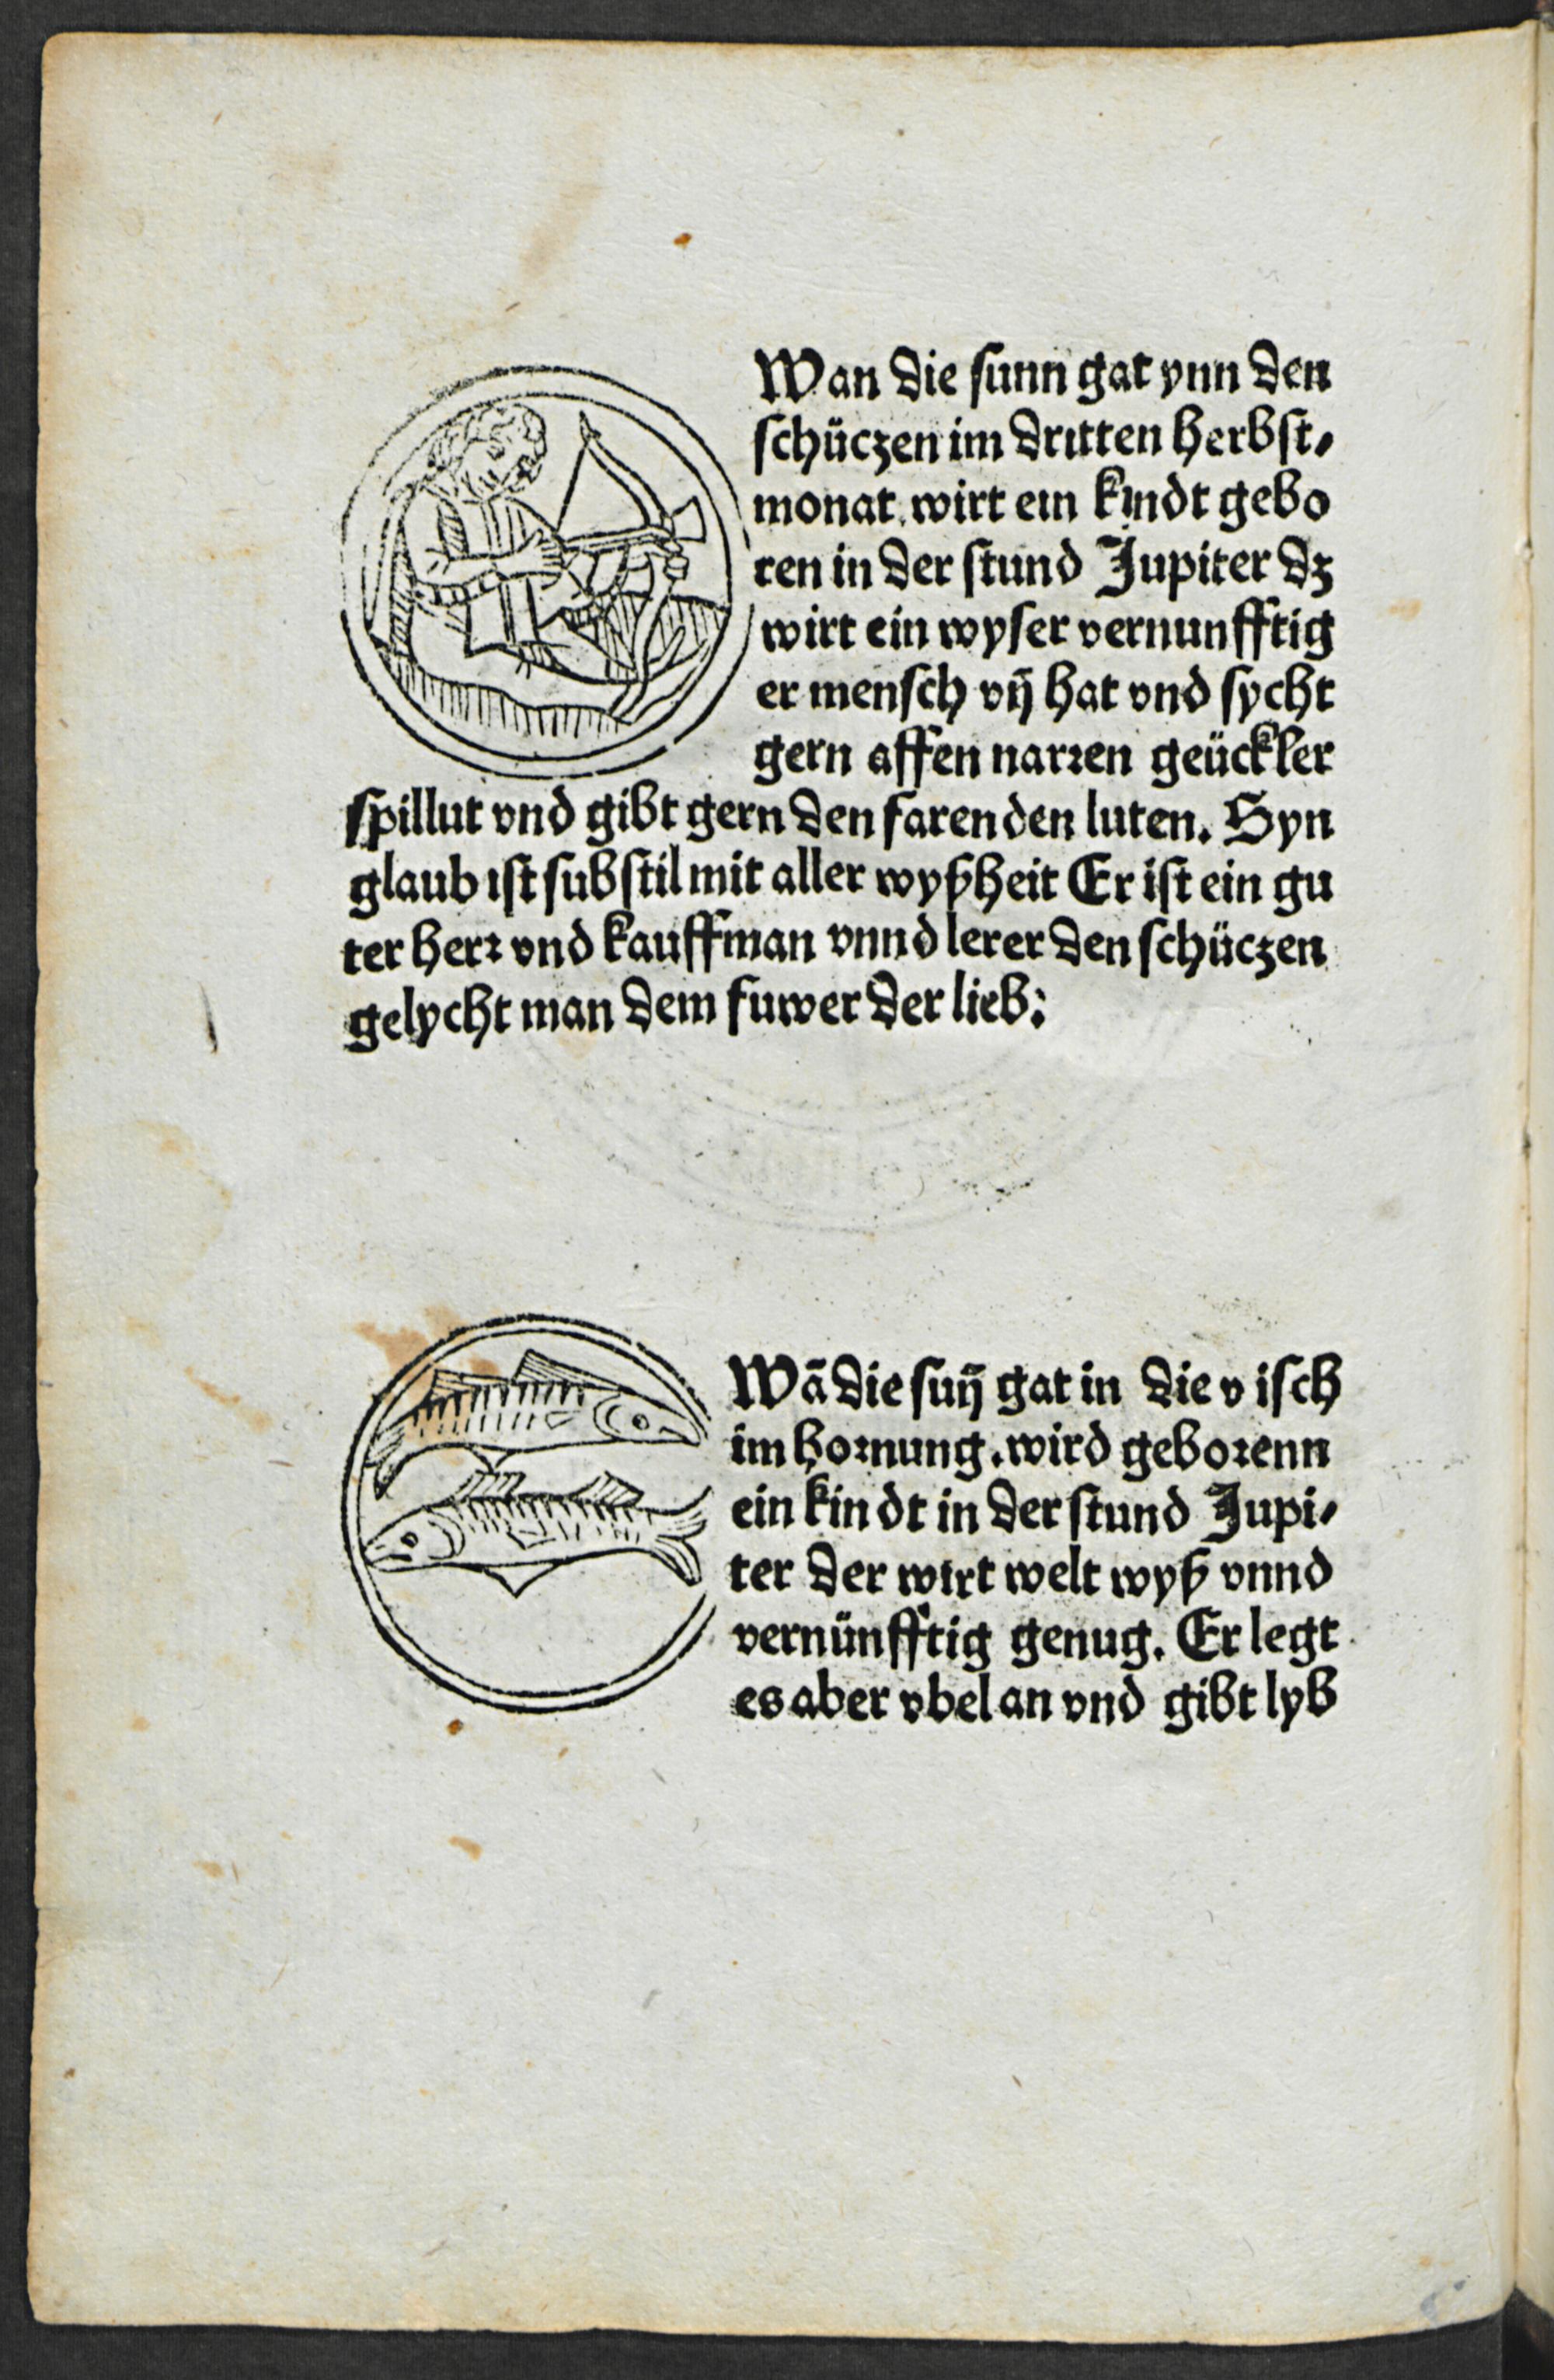 Wan die sunn gat ynn den
schüczen im dritten herbst⸗
monat. wirt ein kindt gebo
ren in der stund Jupiter dz
wirt ein wyser vernunfftig
er mensch vn̄ hat vnd sycht
gern affen narren geückler
spillut vnd gibt gern den farenden luten. Syn
glaub ist substil mit aller wyßheit Er ist ein gu
ter herr vnd kauffman vnnd lerer den schüczen
gelycht man dem fuwer der lieb:
Wā die sun̄ gat in die visch
im hornung. wird geborenn
ein kindt in der stund Jupi⸗
ter der wirt welt wyß vnnd
vernünfftig genug. Er legt
es aber vbel an vnd gibt lyb